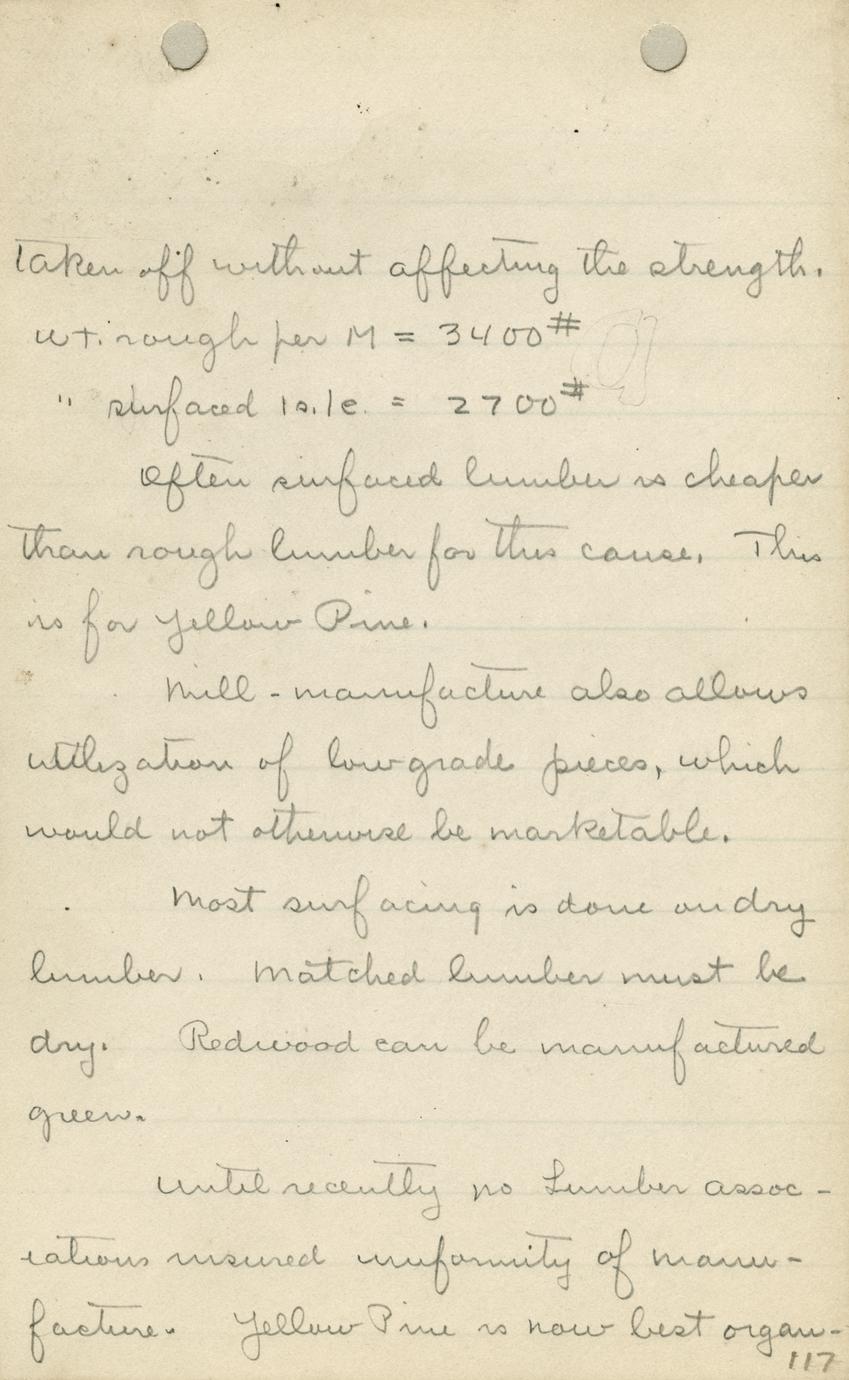 taken off without affecting the strength.
wt. rough per M = 3400#
" surfaced 1s.1e. = 2700#
Often surfaced lumber is cheaper
than rough lumber for this cause. This
is for Yellow Pine.
Mill-manufacture also allows
utilization of low grade pieces, which
would not otherwise be marketable.
Most surfacing is done on dry
lumber. Matched lumber must be
dry. Redwood can be manufactured
green.
Until recently no Lumber assoc-
iations insured uniformity of manu-
facture. Yellow Pine is now best organ-
117